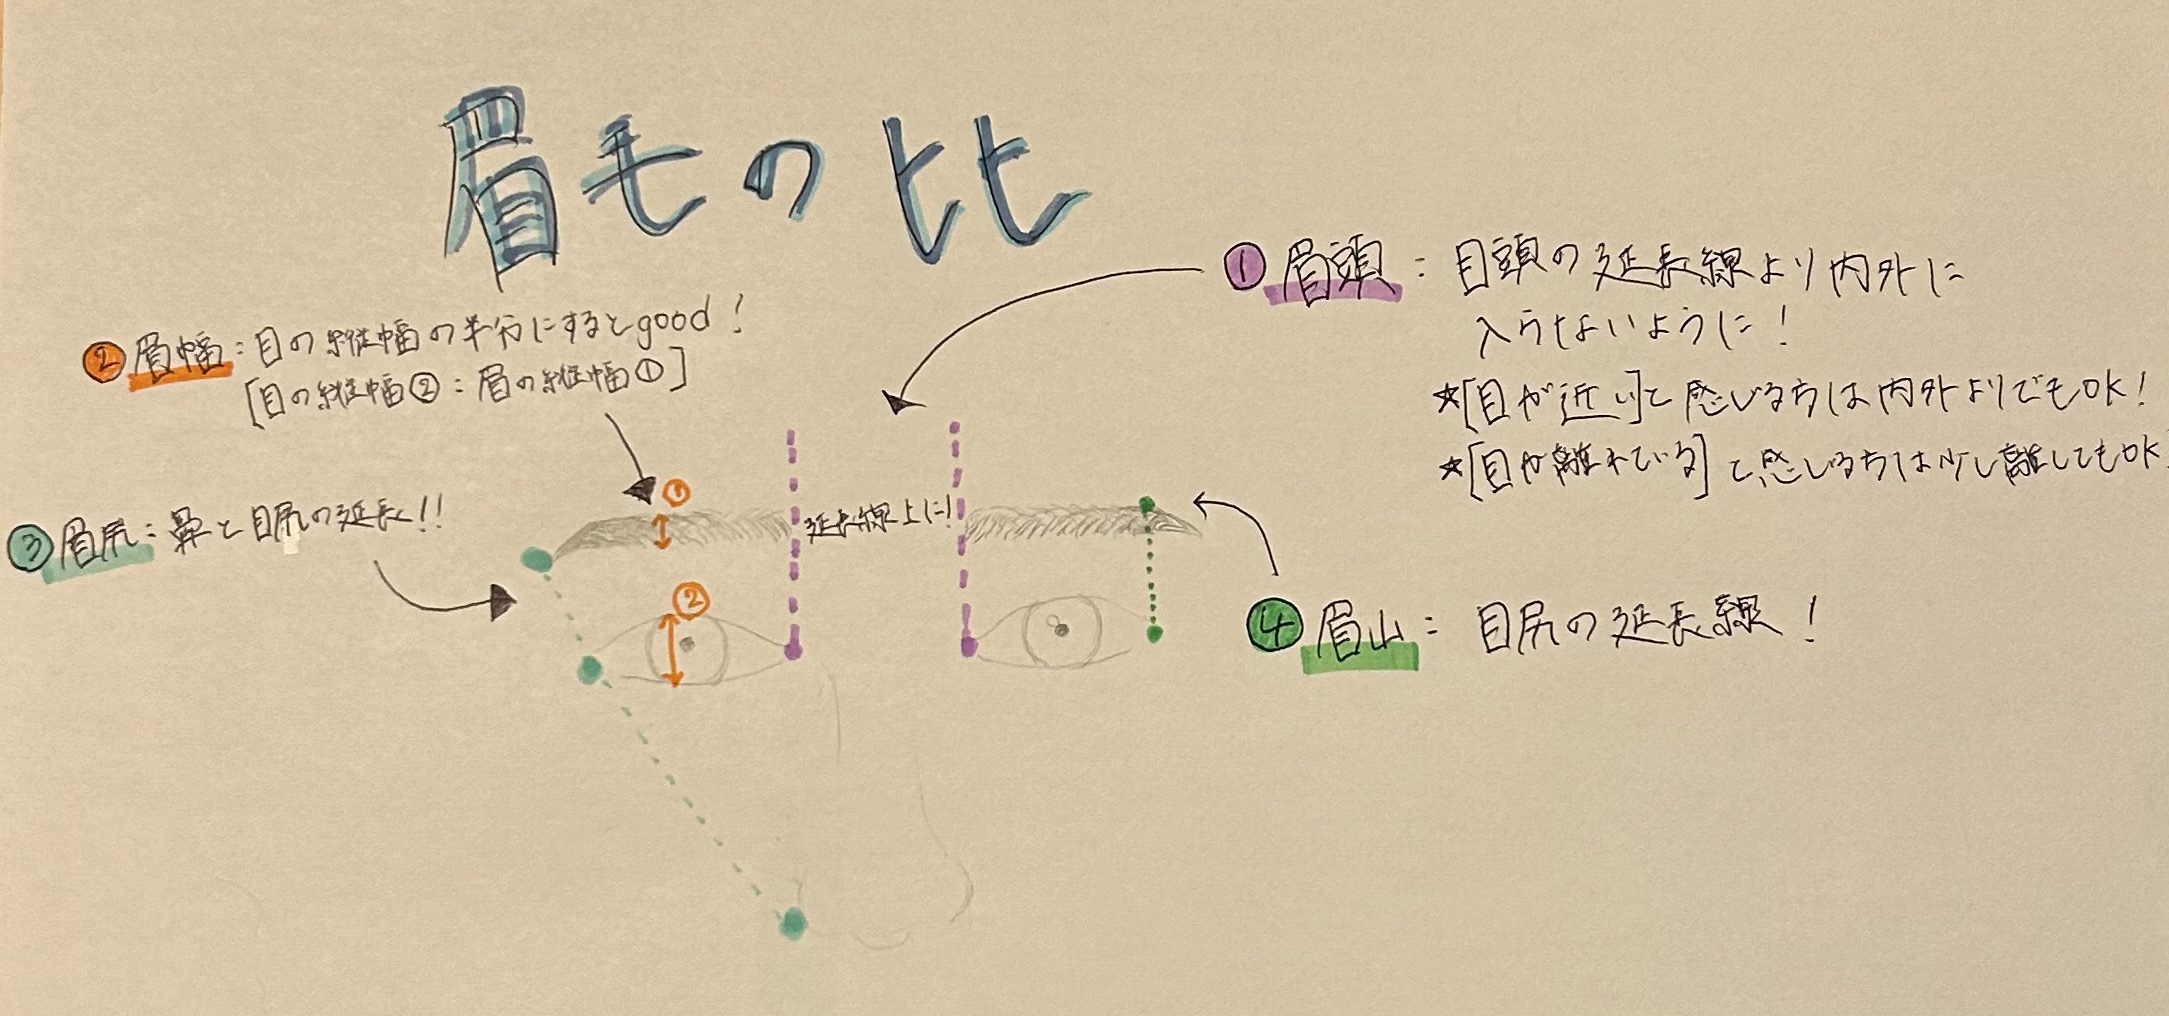 眉毛の比
①眉頭：目頭の延長線より内外に
入らないように！
★[目が近い]と感じる方は内外よりでもOK！
★[目が離れている]と感じる方は少し離してもOK
②眉幅：目の縦幅の半分にするとgood！
[目の縦幅②：眉の縦幅①]
③眉尻：鼻と目尻の延長！！
①
延長線上に！
②
④眉山：目尻の延長線！